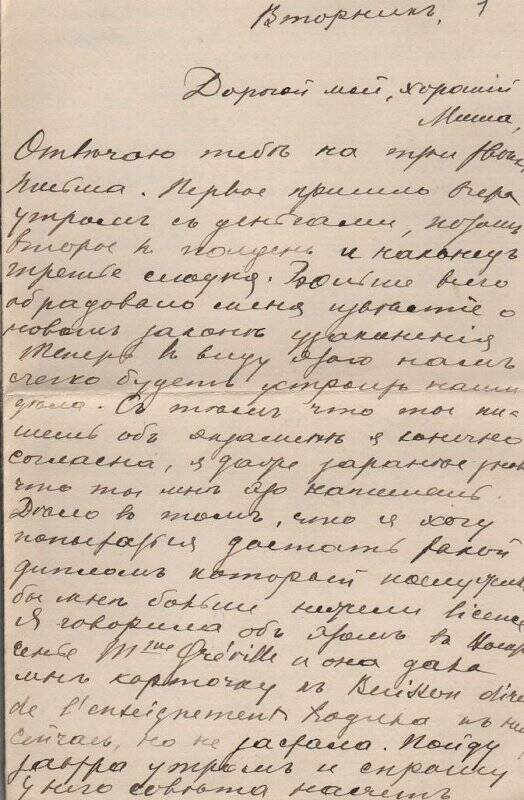 Вторникъ, 1
Дорогой мой, хорошій
Миша,
Отвѣчаю тебѣ на три твоихъ
письма. Первое пришло вчера
утромъ съ деньгами, потомъ
второе въ полдень и наконецъ
третье сегодня. Больше всего
обрадовало меня извѣстіе о
новомъ законѣ узаконенія
Теперь въ виду этого намъ
легко будетъ устроить наши
дѣла. Съ тѣмъ что ты пи-
шешь объ экзаменѣ я конечно
согласна, я даже заранѣе знала
что ты мнѣ это напишешь.
Дѣло въ томъ, что я хочу
попытаться достать такой
дипломъ который послужилъ
бы мнѣ больше нежели licence
Я говорила объ этомъ въ
Mme Gréville и она дала
мнѣ карточку къ Buisson dire
de l'enseignement. Ходила къ нему
сейчасъ, но не застала. Пойду
завтра утромъ и спрошу
у него совѣта насчетъ